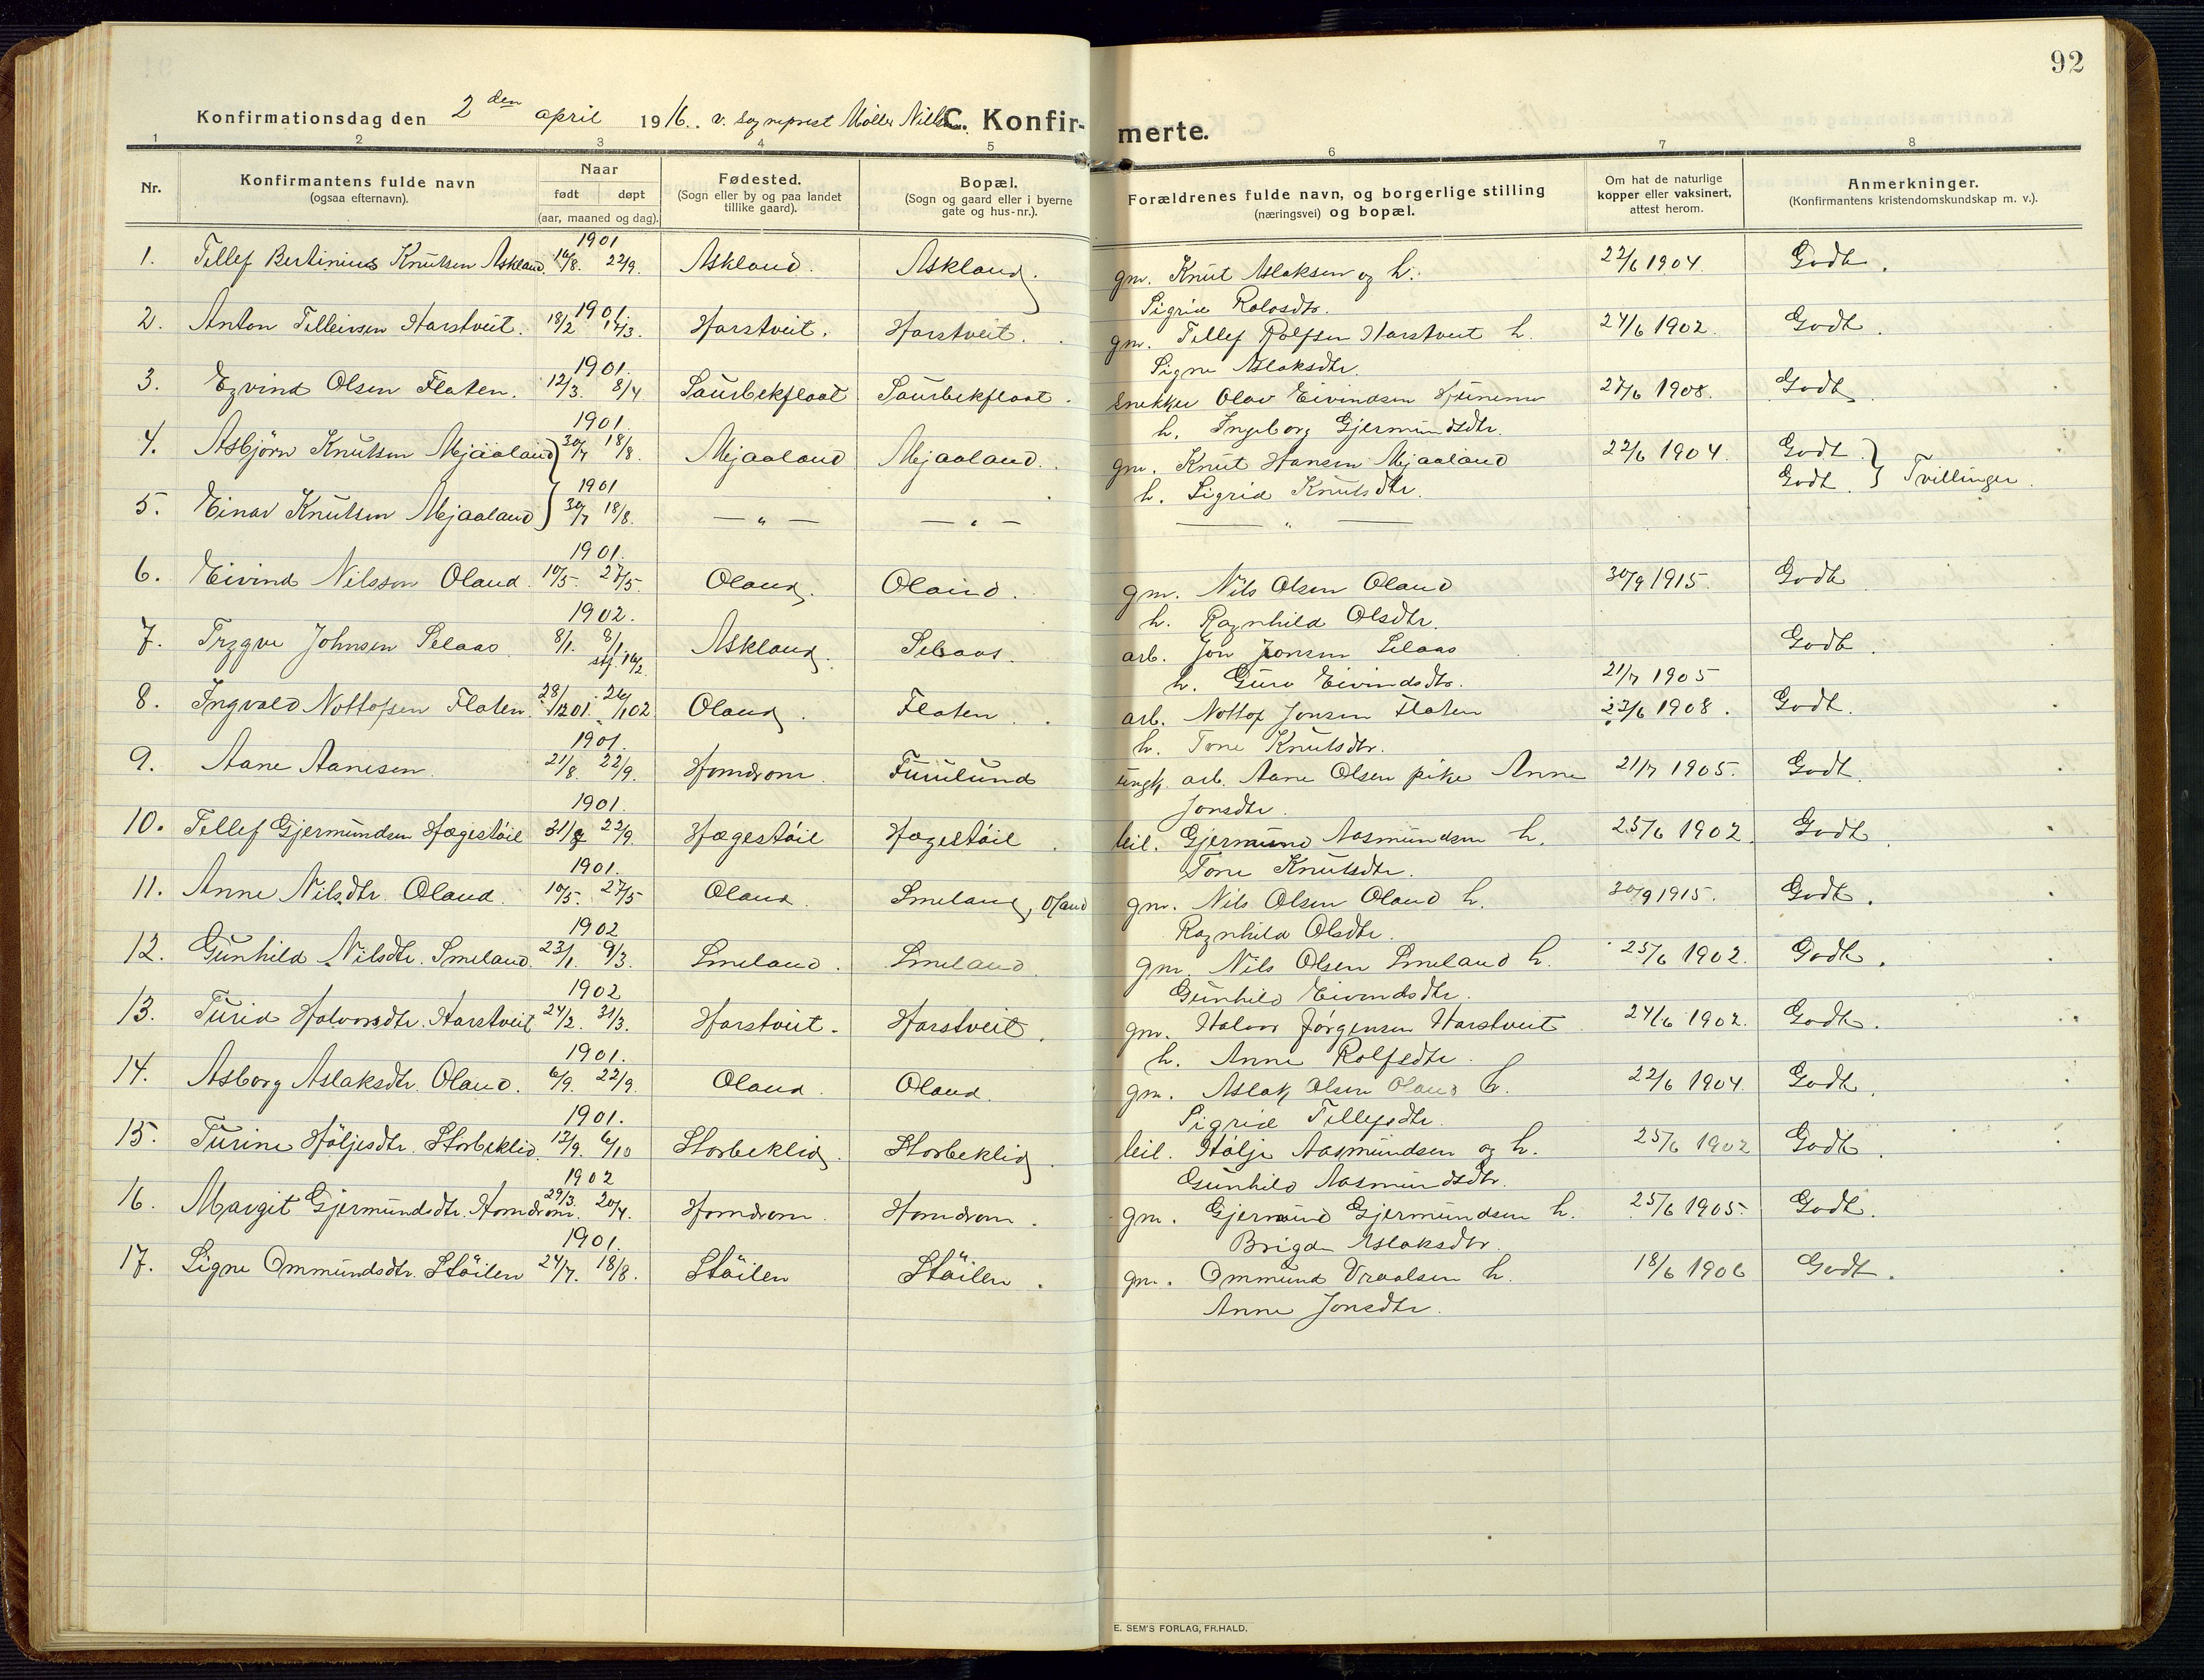 92
Konfirmationsdag den 2den april 1916. v. sogneprest Møller Nilsen. C. Konfirmerte.
1 2 3 4 5 6 7 8
Nr. Konfirmantens fulde navn (ogsaa efternavn). Naar født døpt (aar, maaned og dag). Fødested. (Sogn eller by og paa landet tillike gaard). Bopæl. (Sogn og gaard eller i byerne gate og hus-nr.). Forældrenes fulde navn, og borgerlige stilling (næringsvei) og bopæl. Om hat de naturlige kopper eller vaksinert, attest herom. Anmerkninger. (Konfirmantens kristendomskundskap m. v.).
1901
1. Tellef Bertinius Knutsen Askland. 16/8. 22/9. Askland. Askland. gm. Knut Aslaksen og h. 22/6 1904. Godt.
Sigrid
1901
2. Anton Tellefsen Harstveit. 18/2 17/3. Harstveit. Harstveit. gm. Tellef Rolfsen Harstveit h. 24/6 1902. Godt.
Signe Aslaksdtr.
1901.
3. Eyvind Olsen Flaten. 12/3. 8/4 Saurbekflaat Saurbekflaat. snekker Olav Eivindsen 27/6 1908. Godt.
h. Ingeborg Gjermundsdtr.
1901.
4. Asbjørn Knutsen Mjaaland 30/7 18/8. Mjaaland Mjaaland. gm. Knut Hansen Mjaaland 22/6 1904. Godt.
h. Sigrid Knutsdtr. Godt. } Tvillinger.
1901
5. Einar Knutsen Mjaaland 30/7 18/8. — " — — " — — " —
1901.
6. Eivind Nilsson Oland. 10/5. 27/5. Oland. Oland. gm. Nils Olsen Oland 30/9 1915. Godt
h. Ragnhild Olsdtr.
1902.
7. Trygve Johnsen Selaas. 8/1. 8/1 Askland. Selaas. arb. Jon Jonsen Selaas Godt.
stf. 16/2
h. Guro Eivindsdtr. 21/7 1905
8. Ingvald Nottofsen Flaten. 28/12 01. 26/1 02 Oland. Flaten. arb. Nottof Jonsen Flaten 27/6 1908. Godt.
h. Tone Knutsdtr.
1901.
9. Aane Aanesen. 21/8. 22/9. Homdrom. Furulund ungk. arb. Aane Olsen pike Anne 21/7 1905. Godt.
Jonsdtr.
1901.
10. Tellef Gjermundsen Hægestøil 31/8 22/9. Hægestøil Hægestøil. leil. Gjermund Aasmundsen h. 25/6 1902. Godt.
Tone Knutsdtr.
1901.
11. Anne Nilsdtr. Oland. 10/5. 27/5 Oland. Smeland, Oland gm. Nils Olsen Oland h. 30/9 1915. Godt.
Ragnhild Olsdtr.
1902
12. Gunhild Nilsdtr. Smeland. 23/1. 9/3. Smeland. Smeland. gm. Nils Olsen Smeland h. 25/6 1902. Godt.
Gunhild Eivindsdtr.
1902
13. Turid Halvorsdtr. Harstveit 24/2. 31/3. Harstveit. Harstveit. gm. Halvor Jørgensen Harstveit 24/6 1902. Godt.
h. Anne Rolfsdtr.
1901.
14. Asborg Aslaksdtr. Oland. 6/9. 22/9. Oland. Oland. gm. Aslak Olsen Oland h. 22/6 1904. Godt.
Sigrid Tellefsdtr.
1901.
15. Turine Høljesdtr. Storbeklid. 12/9. 6/10 Storbeklid. Storbeklid. leil. Hølje Aasmundsen og h. 25/6 1902 Godt.
Gunhild Aasmundsdtr.
1902
16. Margit Gjermundsdtr. Homdrom. 29/3. 20/4. Homdrom. Homdrom. gm. Gjermund Gjermundsen h. 25/6 1905. Godt.
Aslaksdtr.
1901.
17. Signe Ommundsdtr. Støilen 24/7. 18/8. Støilen Støilen. gm. Ommund Vraalsen h. 18/6 1906 Godt.
Anne Jonsdtr.
E. SEM'S FORLAG, FR.HALD.